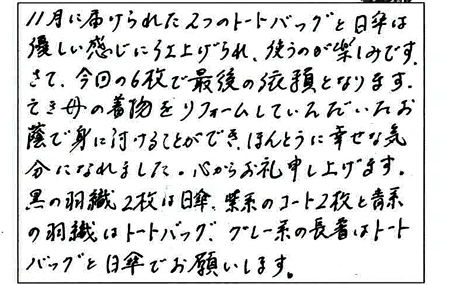 11月に届けられた2つのトートバッグと日傘は
優しい感じに仕上げられ、使うのが楽しみです。
さて、今回の6枚で最後の依頼となります。
亡き母の着物をリフォームしていただいたお
蔭で身に付けることができ、ほんとうに幸せな気
分になれました。心からお礼申し上げます。
黒の羽織2枚は日傘、紫系のコート2枚と青系
の羽織はトートバッグ、グレー系の長着はトート
バッグと日傘でお願いします。